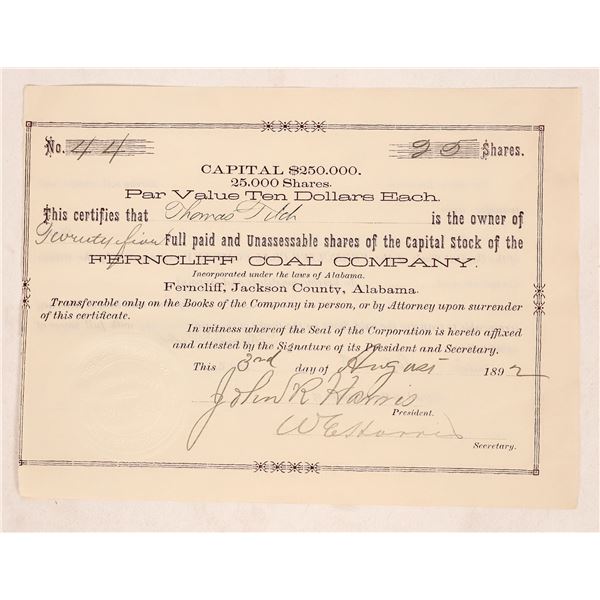 No. 44 25 Shares.
CAPITAL $250.000.
25.000 Shares.
Par Value Ten Dollars Each.
This certifies that Thomas is the owner of
Twenty five Full paid and Unassessable shares of the Capital Stock of the
FERNCLIFF COAL COMPANY.
Incorporated under the laws of Alabama.
Ferncliff, Jackson County, Alabama.
Transferable only on the Books of the Company in person, or by Attorney upon surrender
of this certificate.
In witness whereof the Seal of the Corporation is hereto affixed
and attested by the Signature of its President and Secretary.
This 3rd day of August 1892
John R Harris
President.
W E Harris
Secretary.